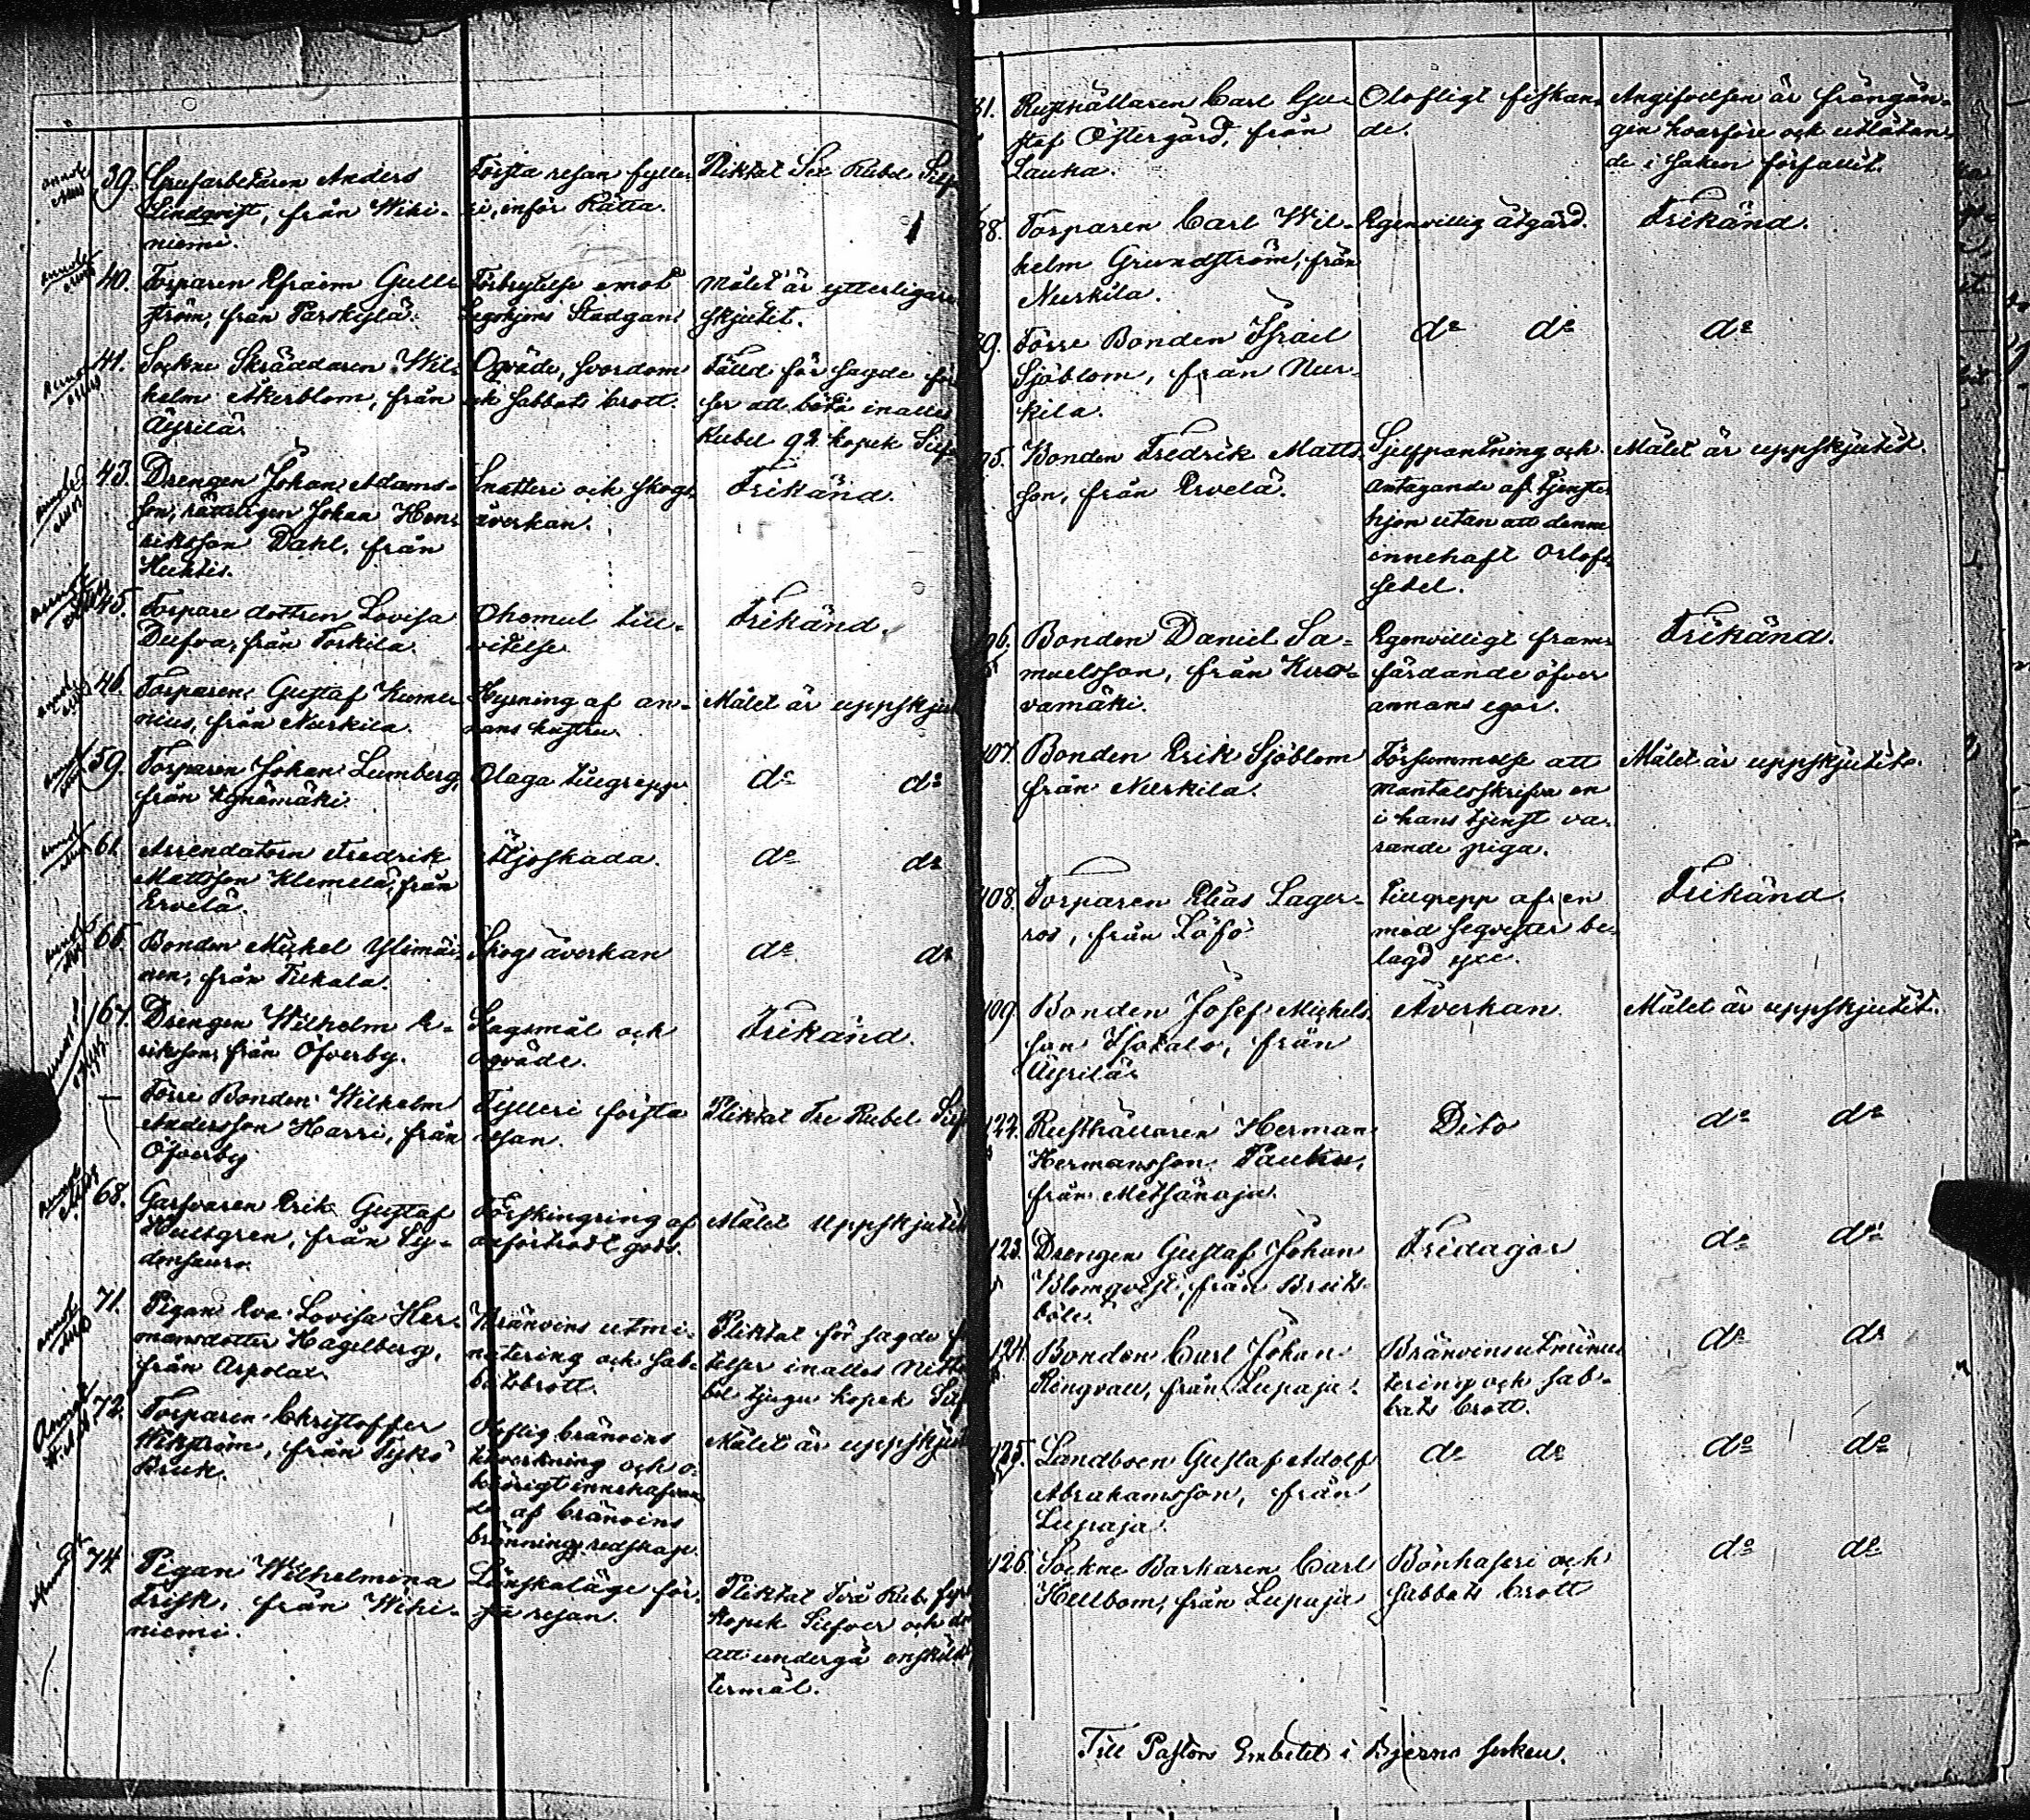 39. Grufarbetaren Anders
Lindqvist, från Wihi-
niemi.
Första resan fylle-
ri, inför Rätta.
Pliktat Sex Rubel Silf
40. Torparen Efraim Gull-
ström, från Parskylä.
Förbrytelse emot
Legohjons Stadgan.
Målet är ytterligare
skjutit.
41. Sockne Skräddaren Wil-
helm Åkerblom, från
Äyrilä.
Oqväde, svordom
och sabbats brott.
Fälld för sagde för
ser att böta inalles
Rubel 92 kopek Silf
43. Drengen Johan Adams-
son, rätteligen Johan Hen-
riksson Dahl, från
Huhtis.
Snatteri och skogs
åverkan.
Frikänd.
45. Torpare dottren Lovisa
Dufva, från Torkila.
Ohemul till-
vitelse.
Frikänd.
46. Torparen Gustaf Kume-
nius, från Nurkila.
Hysning af an-
nans hustru.
Målet är uppskju
59. Torparen Johan Lumberg,
från Kynämäki
Olaga tillgrepp
do do
61. Arrendatorn Fredrik
Mattsson Klemelä, från
Ervelä.
Åljoskada.
do do
65. Bonden Mickel Ylimäi-
nen, från Tiikala.
Skogsåverkan
do do
67. Drengen Wilhelm E-
riksson, från Öfverby.
Slagsmål och
oqväde.
Frikänd.
Förre Bonden Wilhelm
Andersson Harri, från
Öfverby
Fylleri första
resan.
Pliktat Tre Rubel Silf
68. Garfvaren Erik Gustaf
Hultgren, från Sy-
densauro.
Förskingring af
anförtrodt gods.
Målet uppskjutit
71. Pigan Eva Lovisa Her-
mansdotter Hagelberg,
från Arpolax.
Bränvins utmi-
nutering och sab-
batsbrott.
Pliktat för sagde f
telser inalles Nitto
bel tjugu kopek Silf
72. Torparen Christoffer
Wikström, från Tykö
Bruk.
Oloflig bränvins
tillverkning och o-
behörigt innehafvan
de af bränvins
brännings redskap.
Målet är uppskjut
74 Pigan Wilhelmina
Frisk, från Wihi-
niemi.
Lönskaläge för-
sta resan.
Pliktat Två Rub. fyr
kopek Silfver och d
att undergå enskildt
termål.
81. Rusthållaren Carl Gu-
staf Östergård, från
Lauka.
Olofligt fiskan-
de.
Angifvelsen är frångån-
gen hvarföre ock utlåtan-
de i saken förfallit.
88. Torparen Carl Wil-
helm Grundström, från
Nurkila.
Egenvillig åtgärd.
Frikänd.
89. Förre Bonden Israel
Sjöblom, från Nur-
kila.
do do
do
95. Bonden Fredrik Matts-
son, från Ervelä.
Sjelfpantning och
antagande af tjenste-
hjon utan att denne
innehaft Orlofs
sedel.
Målet är uppskjutit.
96. Bonden Daniel Sa-
muelsson, från Kuo-
vamäki.
Egenvilligt fram-
färdande öfver
annans egor.
Frikänd.
107. Bonden Erik Sjöblom
från Nurkila.
Försummelse att
mantalsskrifva en
i hans tjenst va-
rande piga.
Målet är uppskjutit.
108. Torparen Elias Lager-
ros, från Löfö
Tillgrepp af en
med seqvester be-
lagd yxe.
Frikänd.
109. Bonden Josef Mickels-
son Isotalo, från
Äyrilä.
Åverkan
Målet är uppskjutit.
122. Rusthållaren Herman
Hermansson Pauku,
från Metsänoja.
Dito
do do
123. Drengen Gustaf Johan
Blomqvist, från Breits-
böle.
Fridagar
do do
124. Bonden Carl Johan
Ringvall, från Lupaja.
Bränvinsutminu-
tering och sab-
bats brott.
do do
125. Landboen Gustaf Adolf
Abrahamsson, från
Lupaja.
do do
do do
126. Sockne Barkaren Carl
Hellbom, från Lupaja
Bönhaseri och
sabbats brott
do do
Till Pastors Embetet i Bjerno socken.